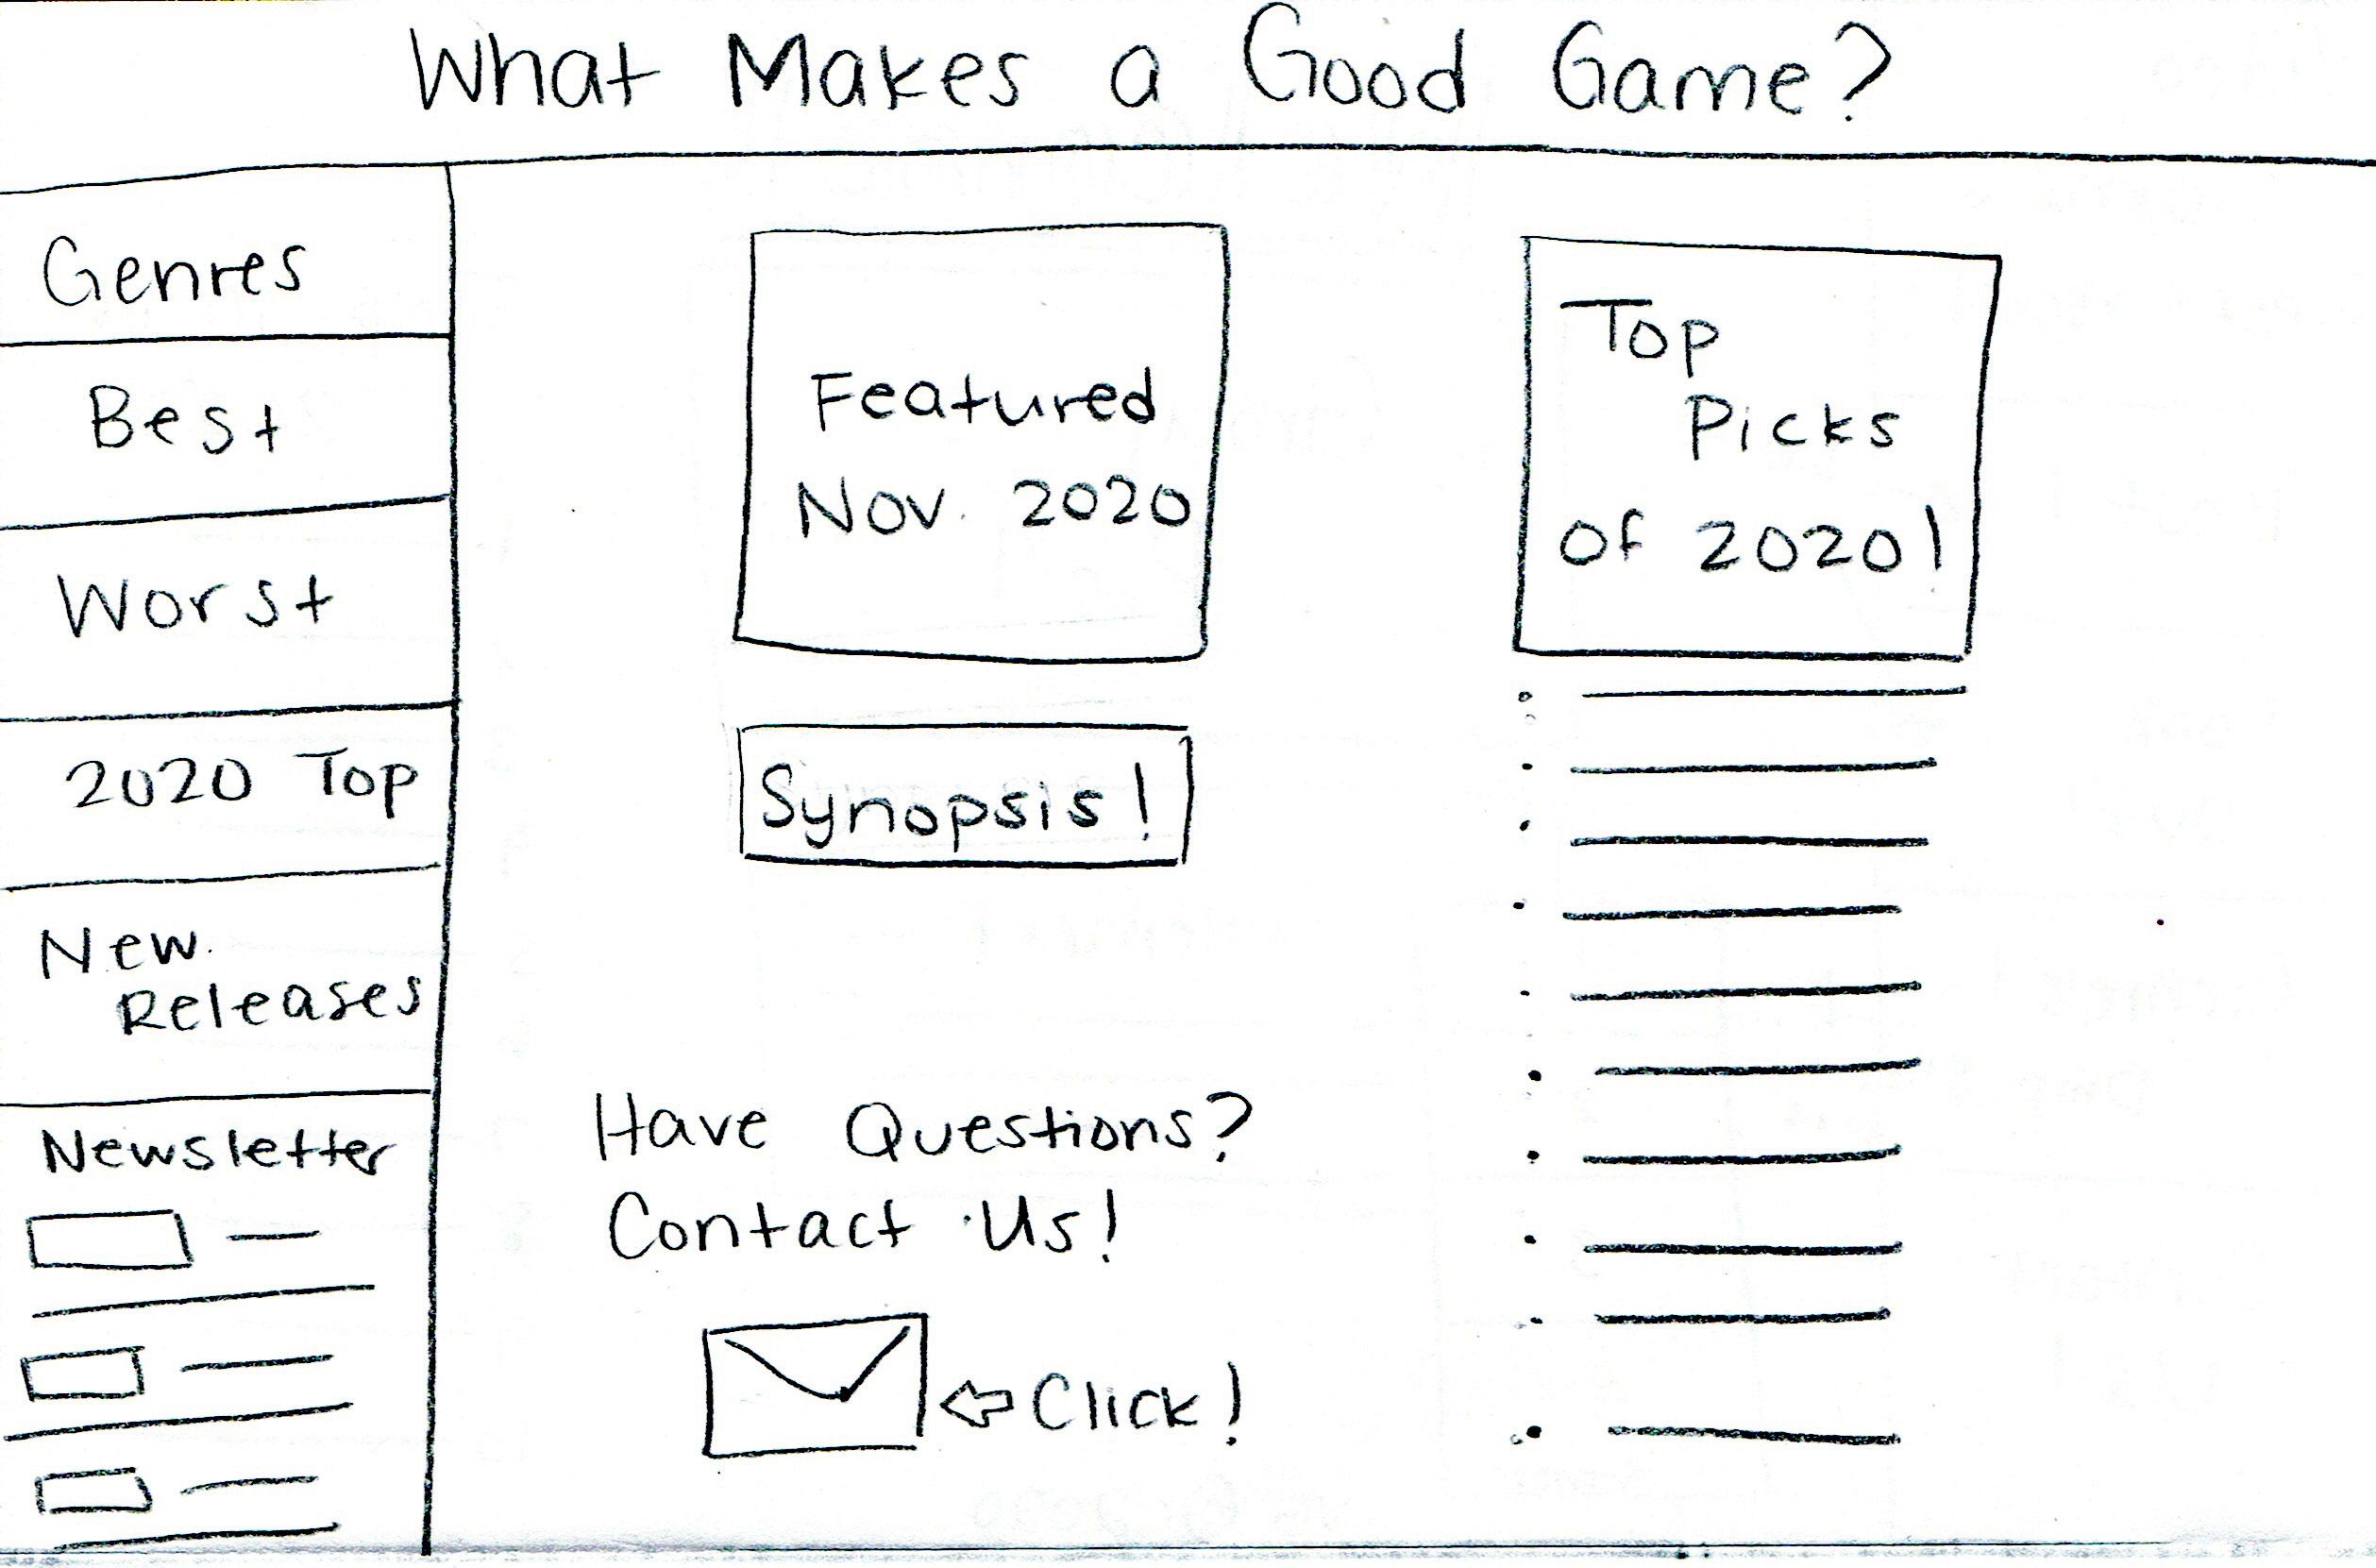 What Makes a Good Game?
Genres
Best
Worst
2020 Top
New
Releases
Newsletter
Featured
Nov. 2020
Synopsis!
Have Questions?
Contact Us!
Click!
Top
Picks
of 2020!